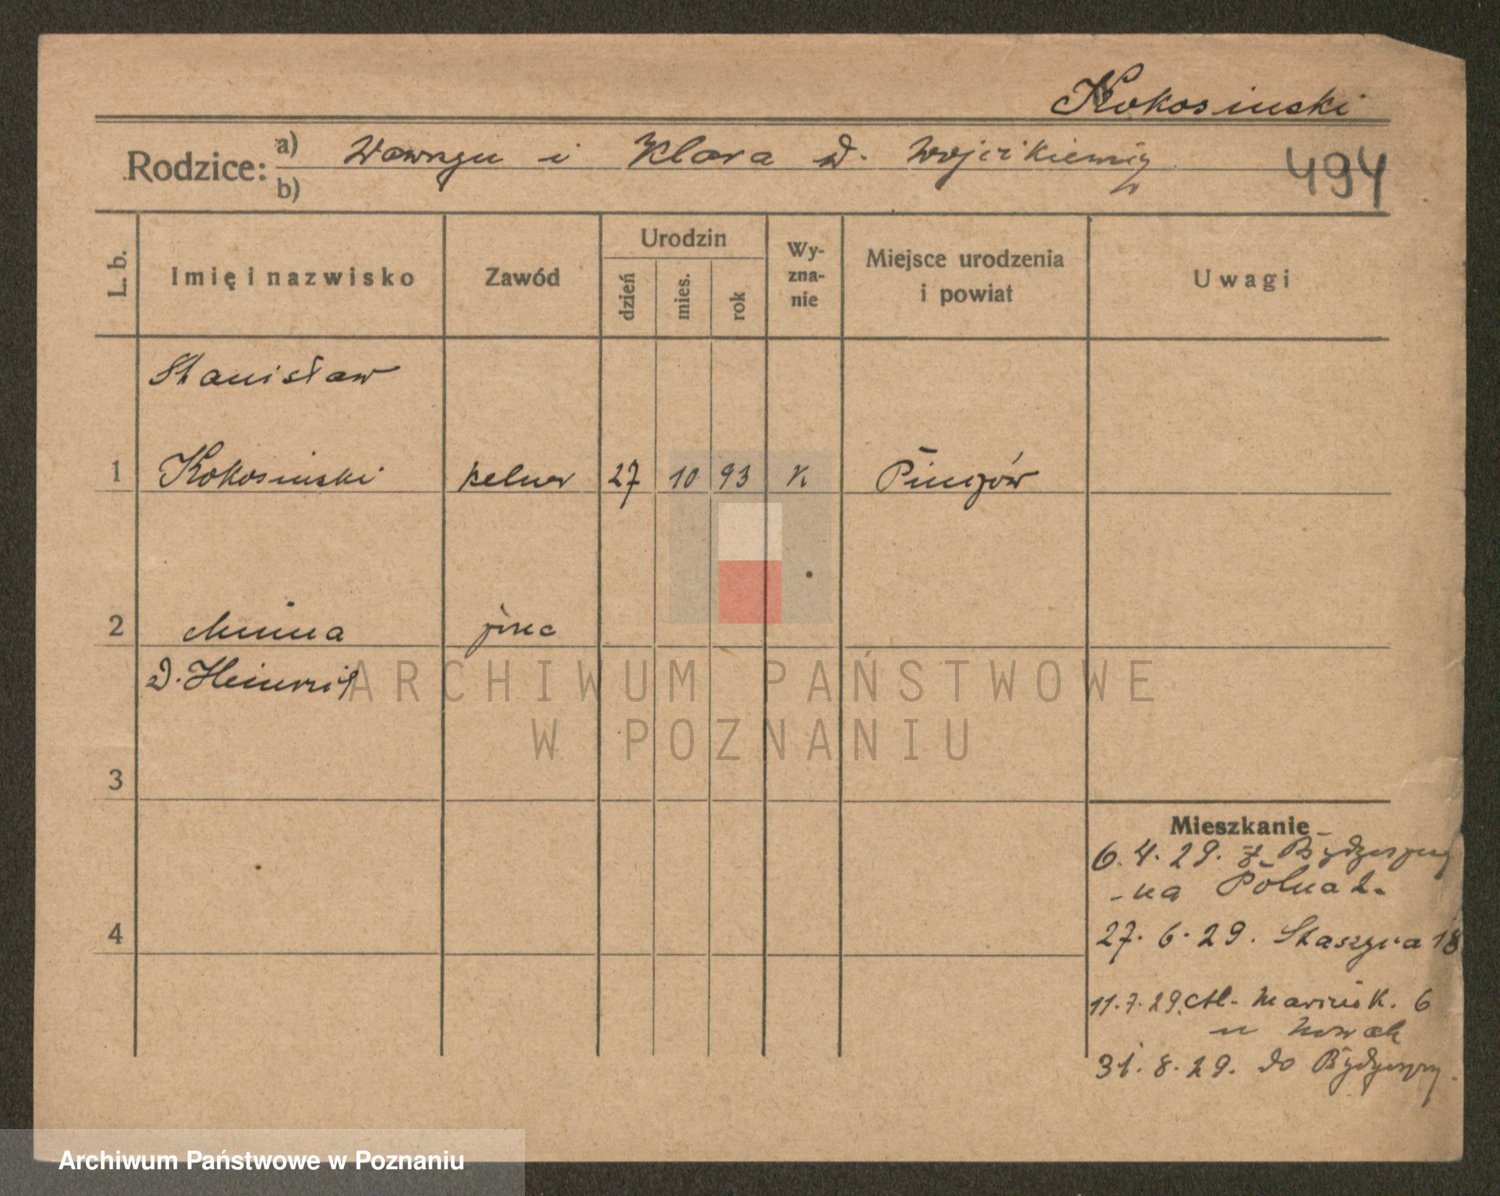 Kokosinski
Rodzice: a) Wawrzyn i Klara D.
b)
494
L. b.
Imię i nazwisko
Zawód
Urodzin
dzień
mies.
rok
Wy-
zna-
nie
Miejsce urodzenia
i powiat
Uwagi
Stanisław
1 Kokosinski kelner 27 10 93 K Pinczów
2
D.
3
4
Mieszkanie
6.4.29. z Bydgoszczy
na Polna 2.
27.6.29. Staszyca 18
11.7.29. Al. Marcink. 6
u Nowak
31.8.29. do Bydgoszczy.
ARCHIWUM PAŃSTWOWE
W POZNANIU
Archiwum Państwowe w Poznaniu